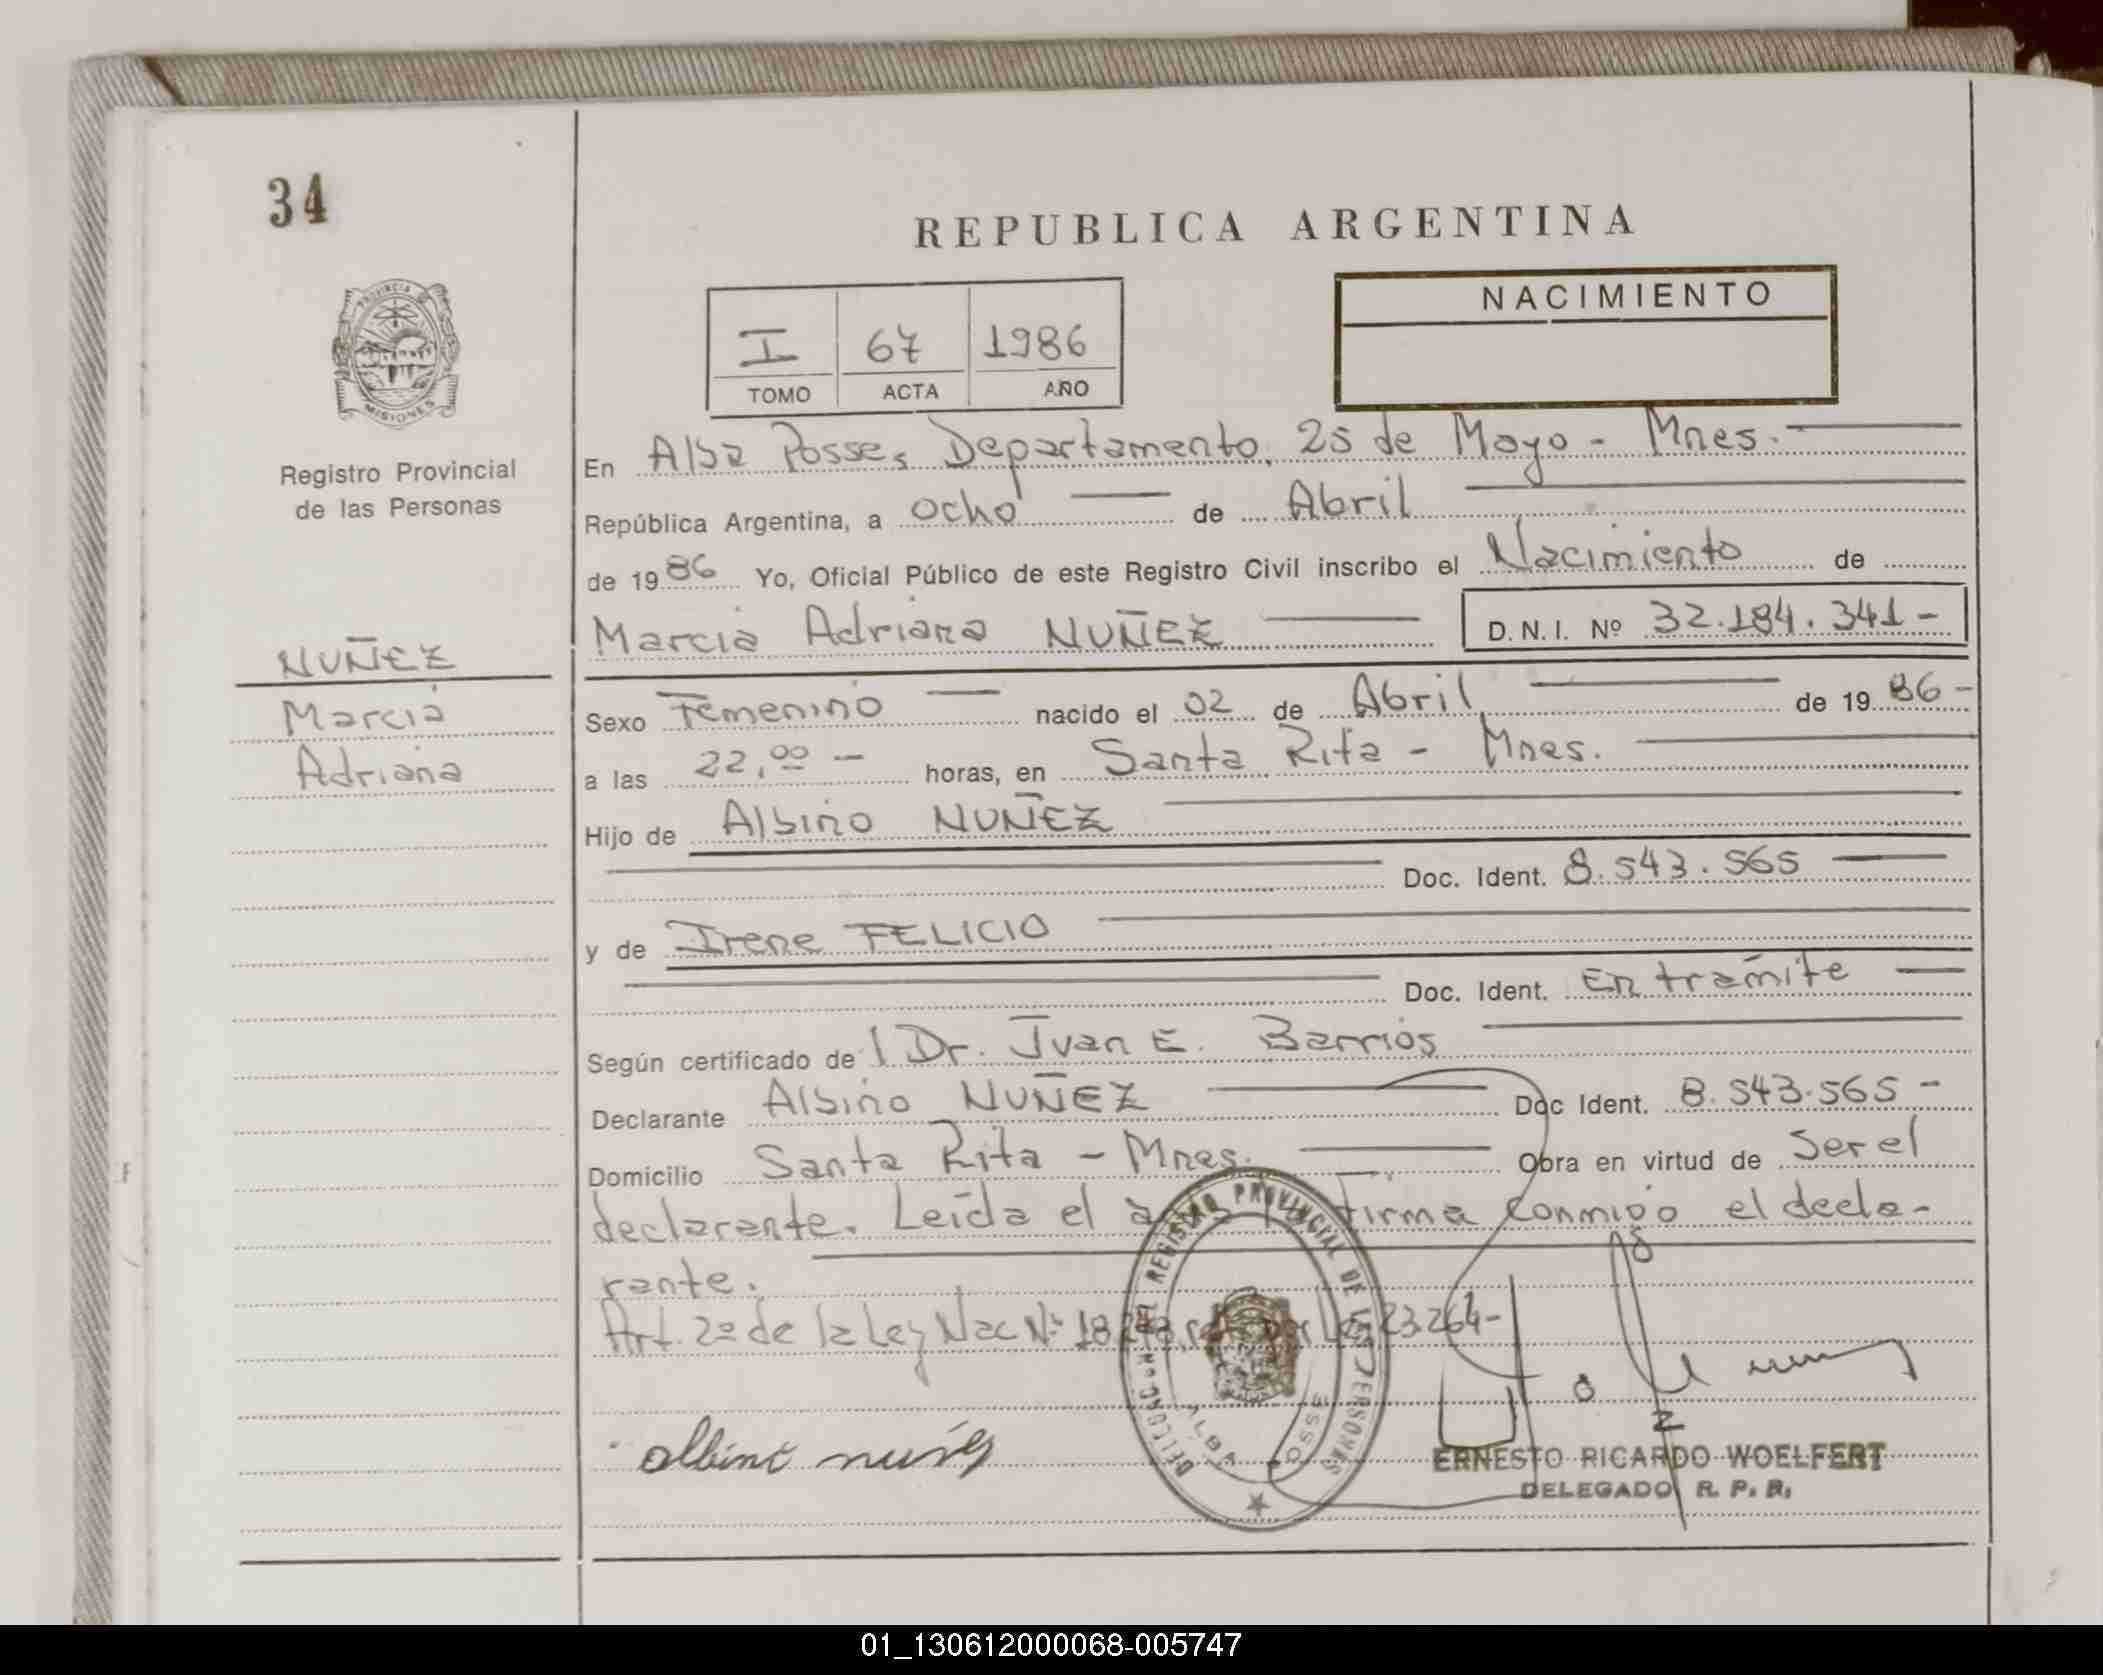 34
REPUBLICA ARGENTINA
NACIMIENTO
I 67 1986
TOMO ACTA AÑO
PROVINCIA DE
MISIONES
Registro Provincial
de las Personas
En Alba Posse, Departamento, 25 de Mayo - Mnes.
República Argentina, a ocho de Abril
de 1986 Yo, Oficial Público de este Registro Civil inscribo el Nacimiento de
Marcia Adriana NUÑEZ D.N.I. Nº 32.184.341-
NUÑEZ
Marcia
Adriana
Sexo Femenino nacido el 02 de Abril de 1986-
a las 22,00 - horas, en Santa Rita - Mnes.
Hijo de Albino NUÑEZ
Doc. Ident. 8.543.565
y de Irene FELICIO
Doc. Ident. En trámite
Según certificado del Dr. Juan E. Barrios
Declarante Albino NUÑEZ Doc Ident. 8.543.565-
Domicilio Santa Rita - Mnes. Obra en virtud de Ser el
declarante. Leída el firma conmigo el decla-
rante.
Art. 2º de la Ley Nac Nº 23.264-
albino nuñez
DEL REGISTRO PROVINCIAL DE LAS PERSONAS
ALBA POSSE
ERNESTO RICARDO WOELFERT
DELEGADO R. P. P.
01_130612000068-005747